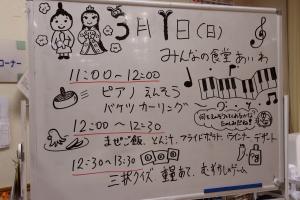 3月1日(日)
みんなの食堂あいわ
11:00~12:00
ピアノ えんそう
バケツ カーリング
12:00~12:30
まぜご飯、とん汁、フライドポテト、ウインナー、デザート
12:30~13:30
三択クイズ 重量あて、むずかしゲーム
コーナー